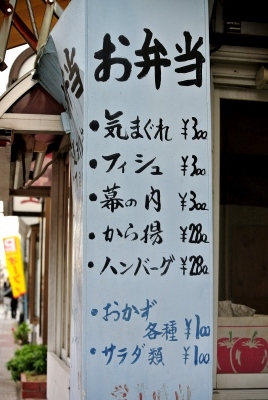 お弁当
・気まぐれ ¥300
・フィシュ ¥300
・幕の内 ¥300
・から揚 ¥280
・ハンバーグ ¥280
・おかず
各種 ¥100
・サラダ類 ¥100
当